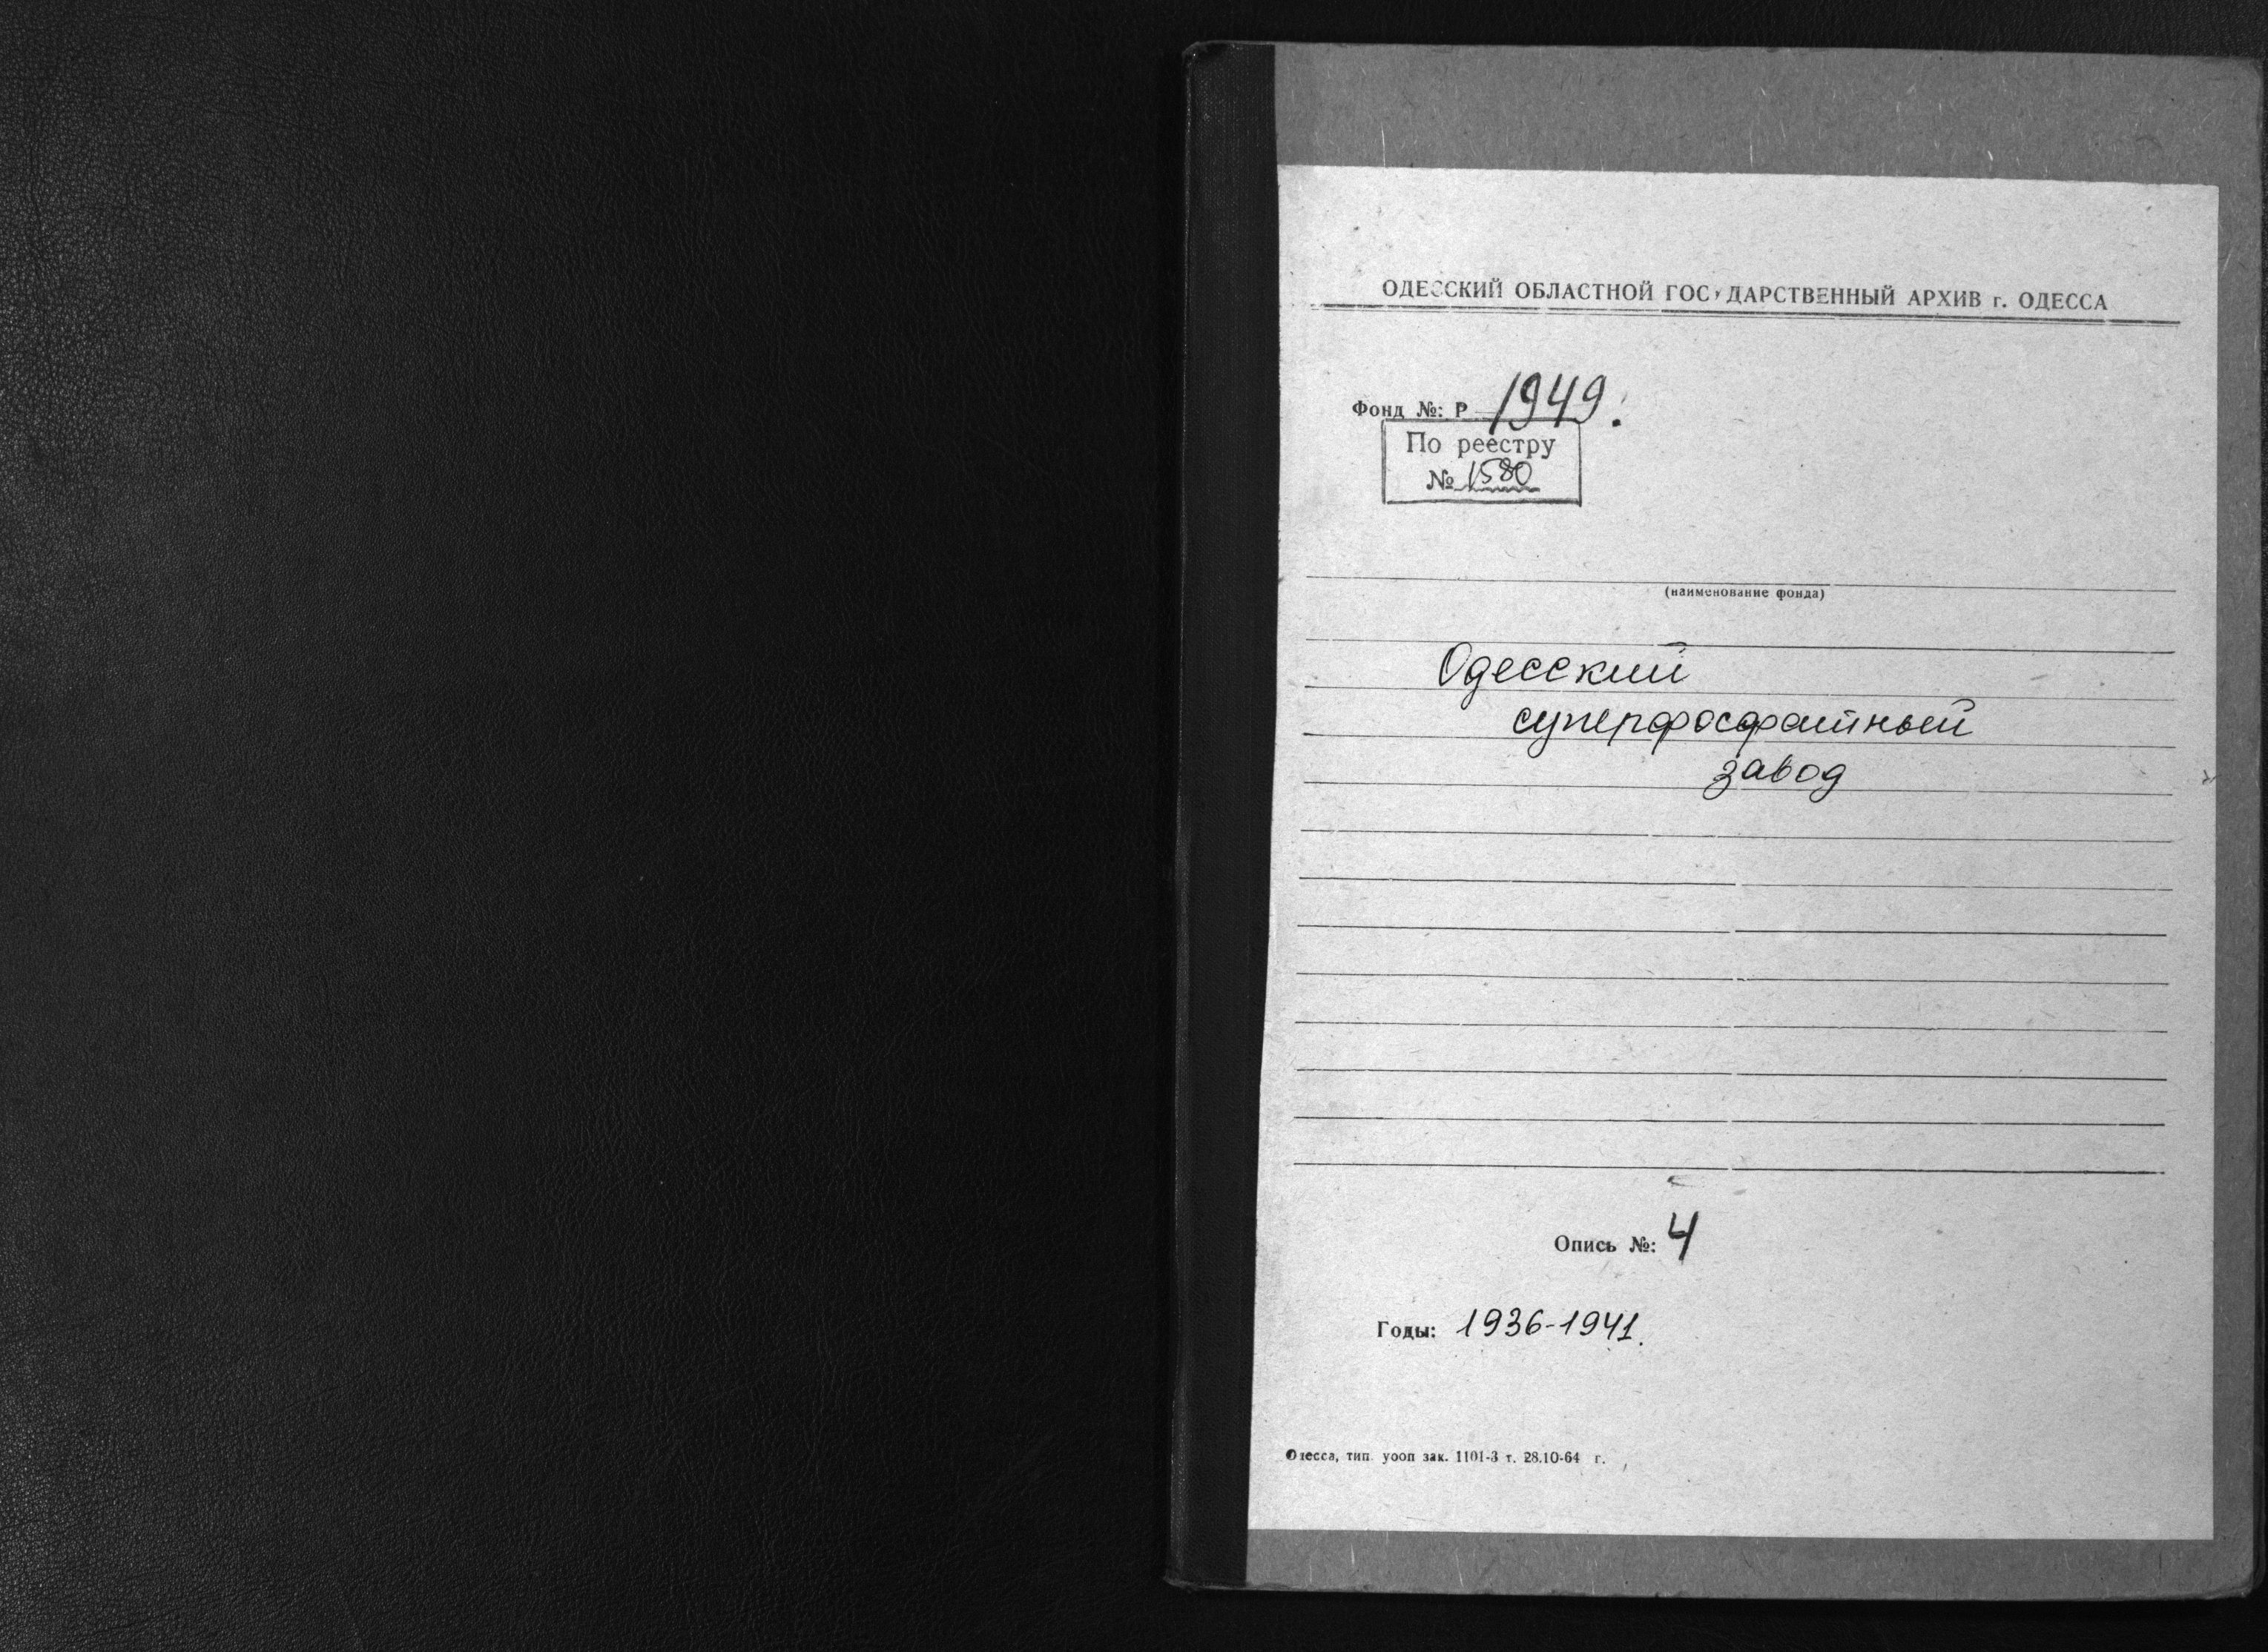 ОДЕССКИЙ ОБЛАСТНОЙ ГОСУДАРСТВЕННЫЙ АРХИВ г. ОДЕССА
Фонд №: Р 1949.
По реестру
№ 1580
(наименование фонда)
Одесский
суперфосфатный
завод
Опись №: 4
Годы: 1936-1941.
Одесса, тип. уооп зак. 1101-3 т. 28.10-64 г.